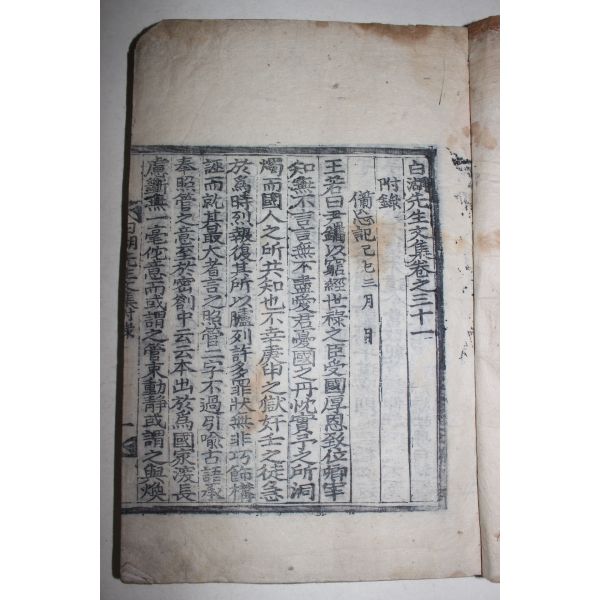 白湖先生文集卷之三十一
附錄
備忘記己巳三月 日
王若曰尹鑴以窮經世祿之臣受國厚恩致位卿宰
知無不言言無不盡愛君憂國之丹忱實予之所洞
燭而國人之所共知也不幸庚申之獄奸壬之徒急
於爲時烈報復其所以臚列許多罪狀無非巧餙構
誣而就其㝡大者言之照管二字不過引喩古語承
奉照管之意至於密劄中云云本出於爲國家深長
慮斷無一毫佗意而或謂之管束動靜或謂之與煥
白湖先生文集附錄 一